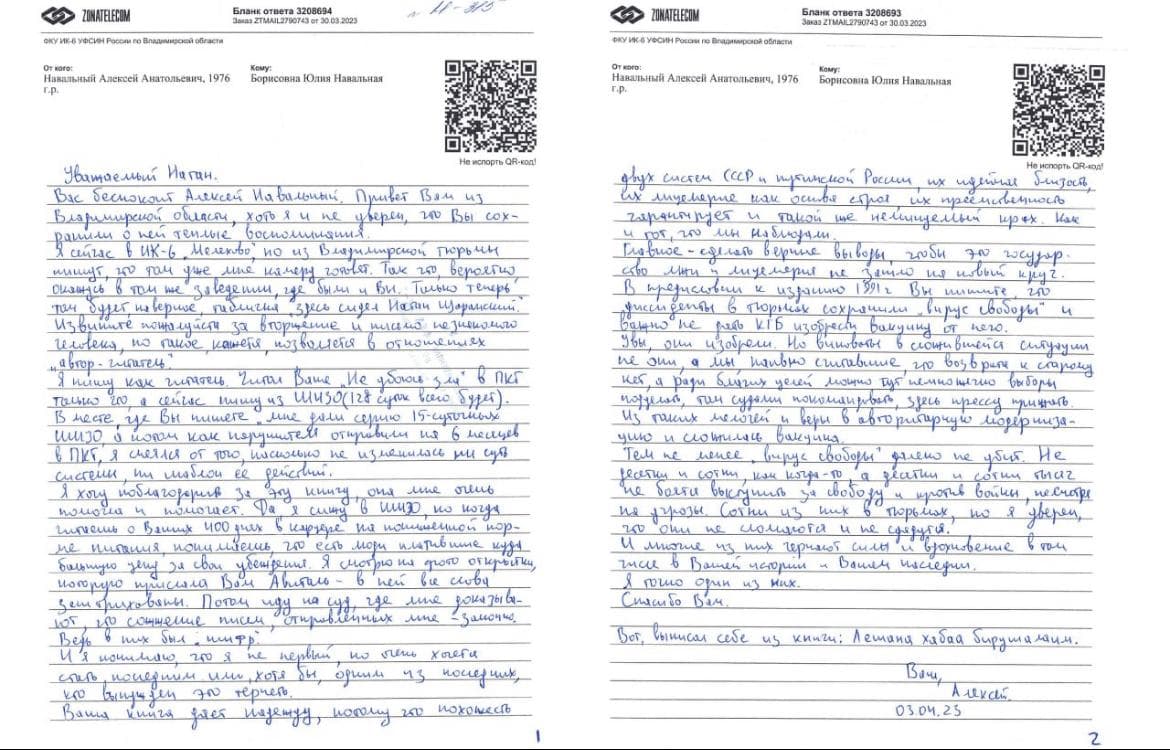 ZONATELECOM
Бланк ответа 3208694
Заказ ZTMAIL2790743 от 30.03.2023
ФКУ ИК-6 УФСИН России по Владимирской области
От кого:
Навальный Алексей Анатольевич, 1976
г.р.
Кому:
Борисовна Юлия Навальная
Не испорть QR-код!
Уважаемый Натан.
Вас беспокоит Алексей Навальный. Привет Вам из
Владимирской области, хотя я и не уверен, что Вы сох-
ранили о ней теплые воспоминания.
Я сейчас в ИК-6 „Мелехово", но из Владимирской тюрьмы
пишут, что там уже мне камеру готовят. Так что, вероятно,
окажусь в том же заведении, где были и Вы. Только теперь
там будет наверное табличка „здесь сидел Натан Щаранский".
Извините пожалуйста за вторжение и письмо незнакомого
человека, но такое, кажется, позволяется в отношениях
„автор-читатель".
Я пишу как читатель. Читал Ваше „Не убоюсь зла" в ПКТ
только что, а сейчас пишу из ШИЗО (128 суток всего будет).
В месте, где Вы пишете „мне дали серию 15-суточных
ШИЗО, а потом как нарушителя отправили на 6 месяцев
в ПКТ", я смеялся от того, насколько не изменилась ни суть
системы, ни шаблон её действий.
Я хочу поблагодарить за эту книгу, она мне очень
помогла и помогает. Да, я сижу в ШИЗО, но когда
читаешь о Ваших 400 днях в карцере на пониженной нор-
ме питания, понимаешь, что есть люди платившие куда
большую цену за свои убеждения. Я смотрю на фото открытки,
которую прислала Вам Авиталь - в ней все слова
заштрихованы. Потом иду на суд, где мне доказыва-
ют, что сожжение писем, отправленных мне - законно.
Ведь в них был „шифр".
И я понимаю, что я не первый, но очень хочется
стать последним или, хотя бы, одним из последних,
кто вынужден это терпеть.
Ваша книга дает надежду, потому что похожесть
1
ZONATELECOM
Бланк ответа 3208693
Заказ ZTMAIL2790743 от 30.03.2023
ФКУ ИК-6 УФСИН России по Владимирской области
От кого:
Навальный Алексей Анатольевич, 1976
г.р.
Кому:
Борисовна Юлия Навальная
Не испорть QR-код!
двух систем СССР и путинской России, их идейная близость,
их лицемерие как основа строя, их преемственность
гарантирует и такой же неминуемый крах. Как
и тот, что мы наблюдали.
Главное - сделать верные выводы, чтобы это государ-
ство лжи и лицемерия не зашло на новый круг.
В предисловии к изданию 1991г Вы пишите, что
диссиденты в тюрьмах сохранили „вирус свободы" и
важно не дать КГБ изобрести вакцину от него.
Увы, они изобрели. Но виноваты в сложившейся ситуации
не они, а мы, наивно считавшие, что возврата к старому
нет, а ради благих целей можно тут немножечко выборы
подделать, там судами покомандовать, здесь прессу прижать.
Из таких мелочей и веры в авторитарную модерниза-
цию и сложилась вакцина.
Тем не менее, „вирус свободы" далеко не убит. Не
десятки и сотни, как когда-то, а десятки и сотни тысяч
не боятся выступить за свободу и против войны, несмотря
на угрозы. Сотни из них в тюрьмах, но я уверен,
что они не сломаются и не сдадутся.
И многие из них черпают силы и вдохновение в том
числе в Вашей истории и Вашем наследии.
Я точно один из них.
Спасибо Вам.
Вот, выписал себе из книги: Лешана хабаа бирушалаим.
Ваш,
Алексей.
03.04.23
2